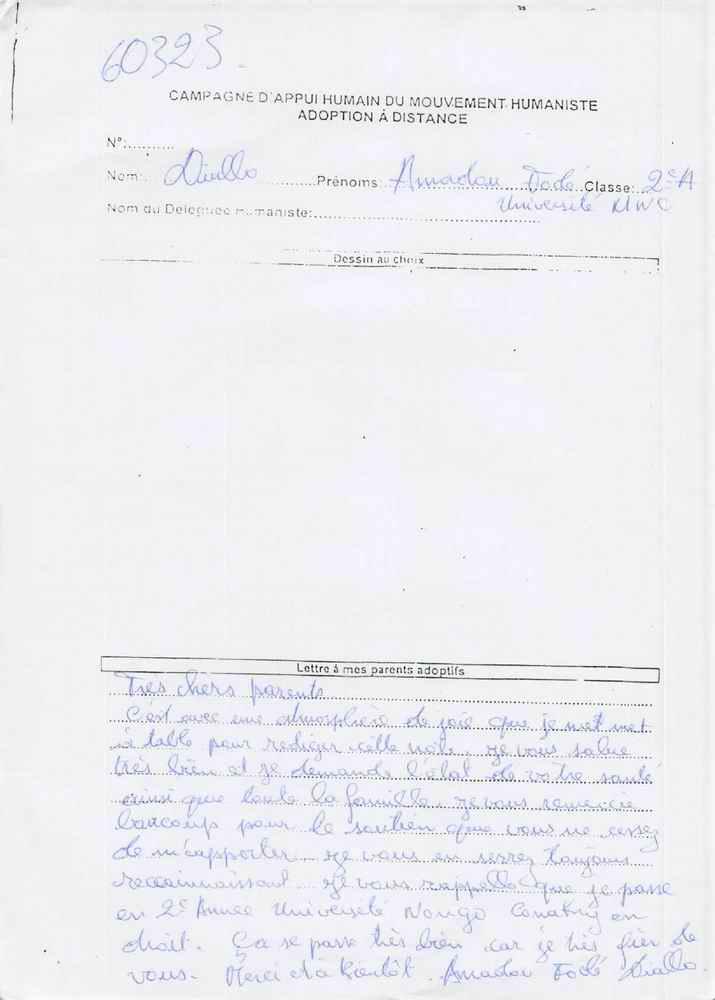 60323
CAMPAGNE D'APPUI HUMAIN DU MOUVEMENT HUMANISTE
ADOPTION À DISTANCE
N°:...........
Nom: Diallo Prénoms: Amadou Fodé Classe: 2e A
Université UNC
Nom du Déléguée Humaniste:
Dessin au choix
Lettre à mes parents adoptifs
Très chers parents
C'est avec une atmosphère de joie que je met met
à table pour rediger cette note. Je vous salue
très bien et je demande l'état de votre santé
ainsi que toute la famille. Je vous remercie
beaucoup pour le soutien que vous ne cessez
de m'apporter. Je vous en serrez toujours
reconnaissant. Je vous rappelle que je passe
en 2e Année Université Nongo Conakry en
droit. Ça se passe très bien car je très fier de
vous. Merci et à bientôt. Amadou Fodé Diallo.